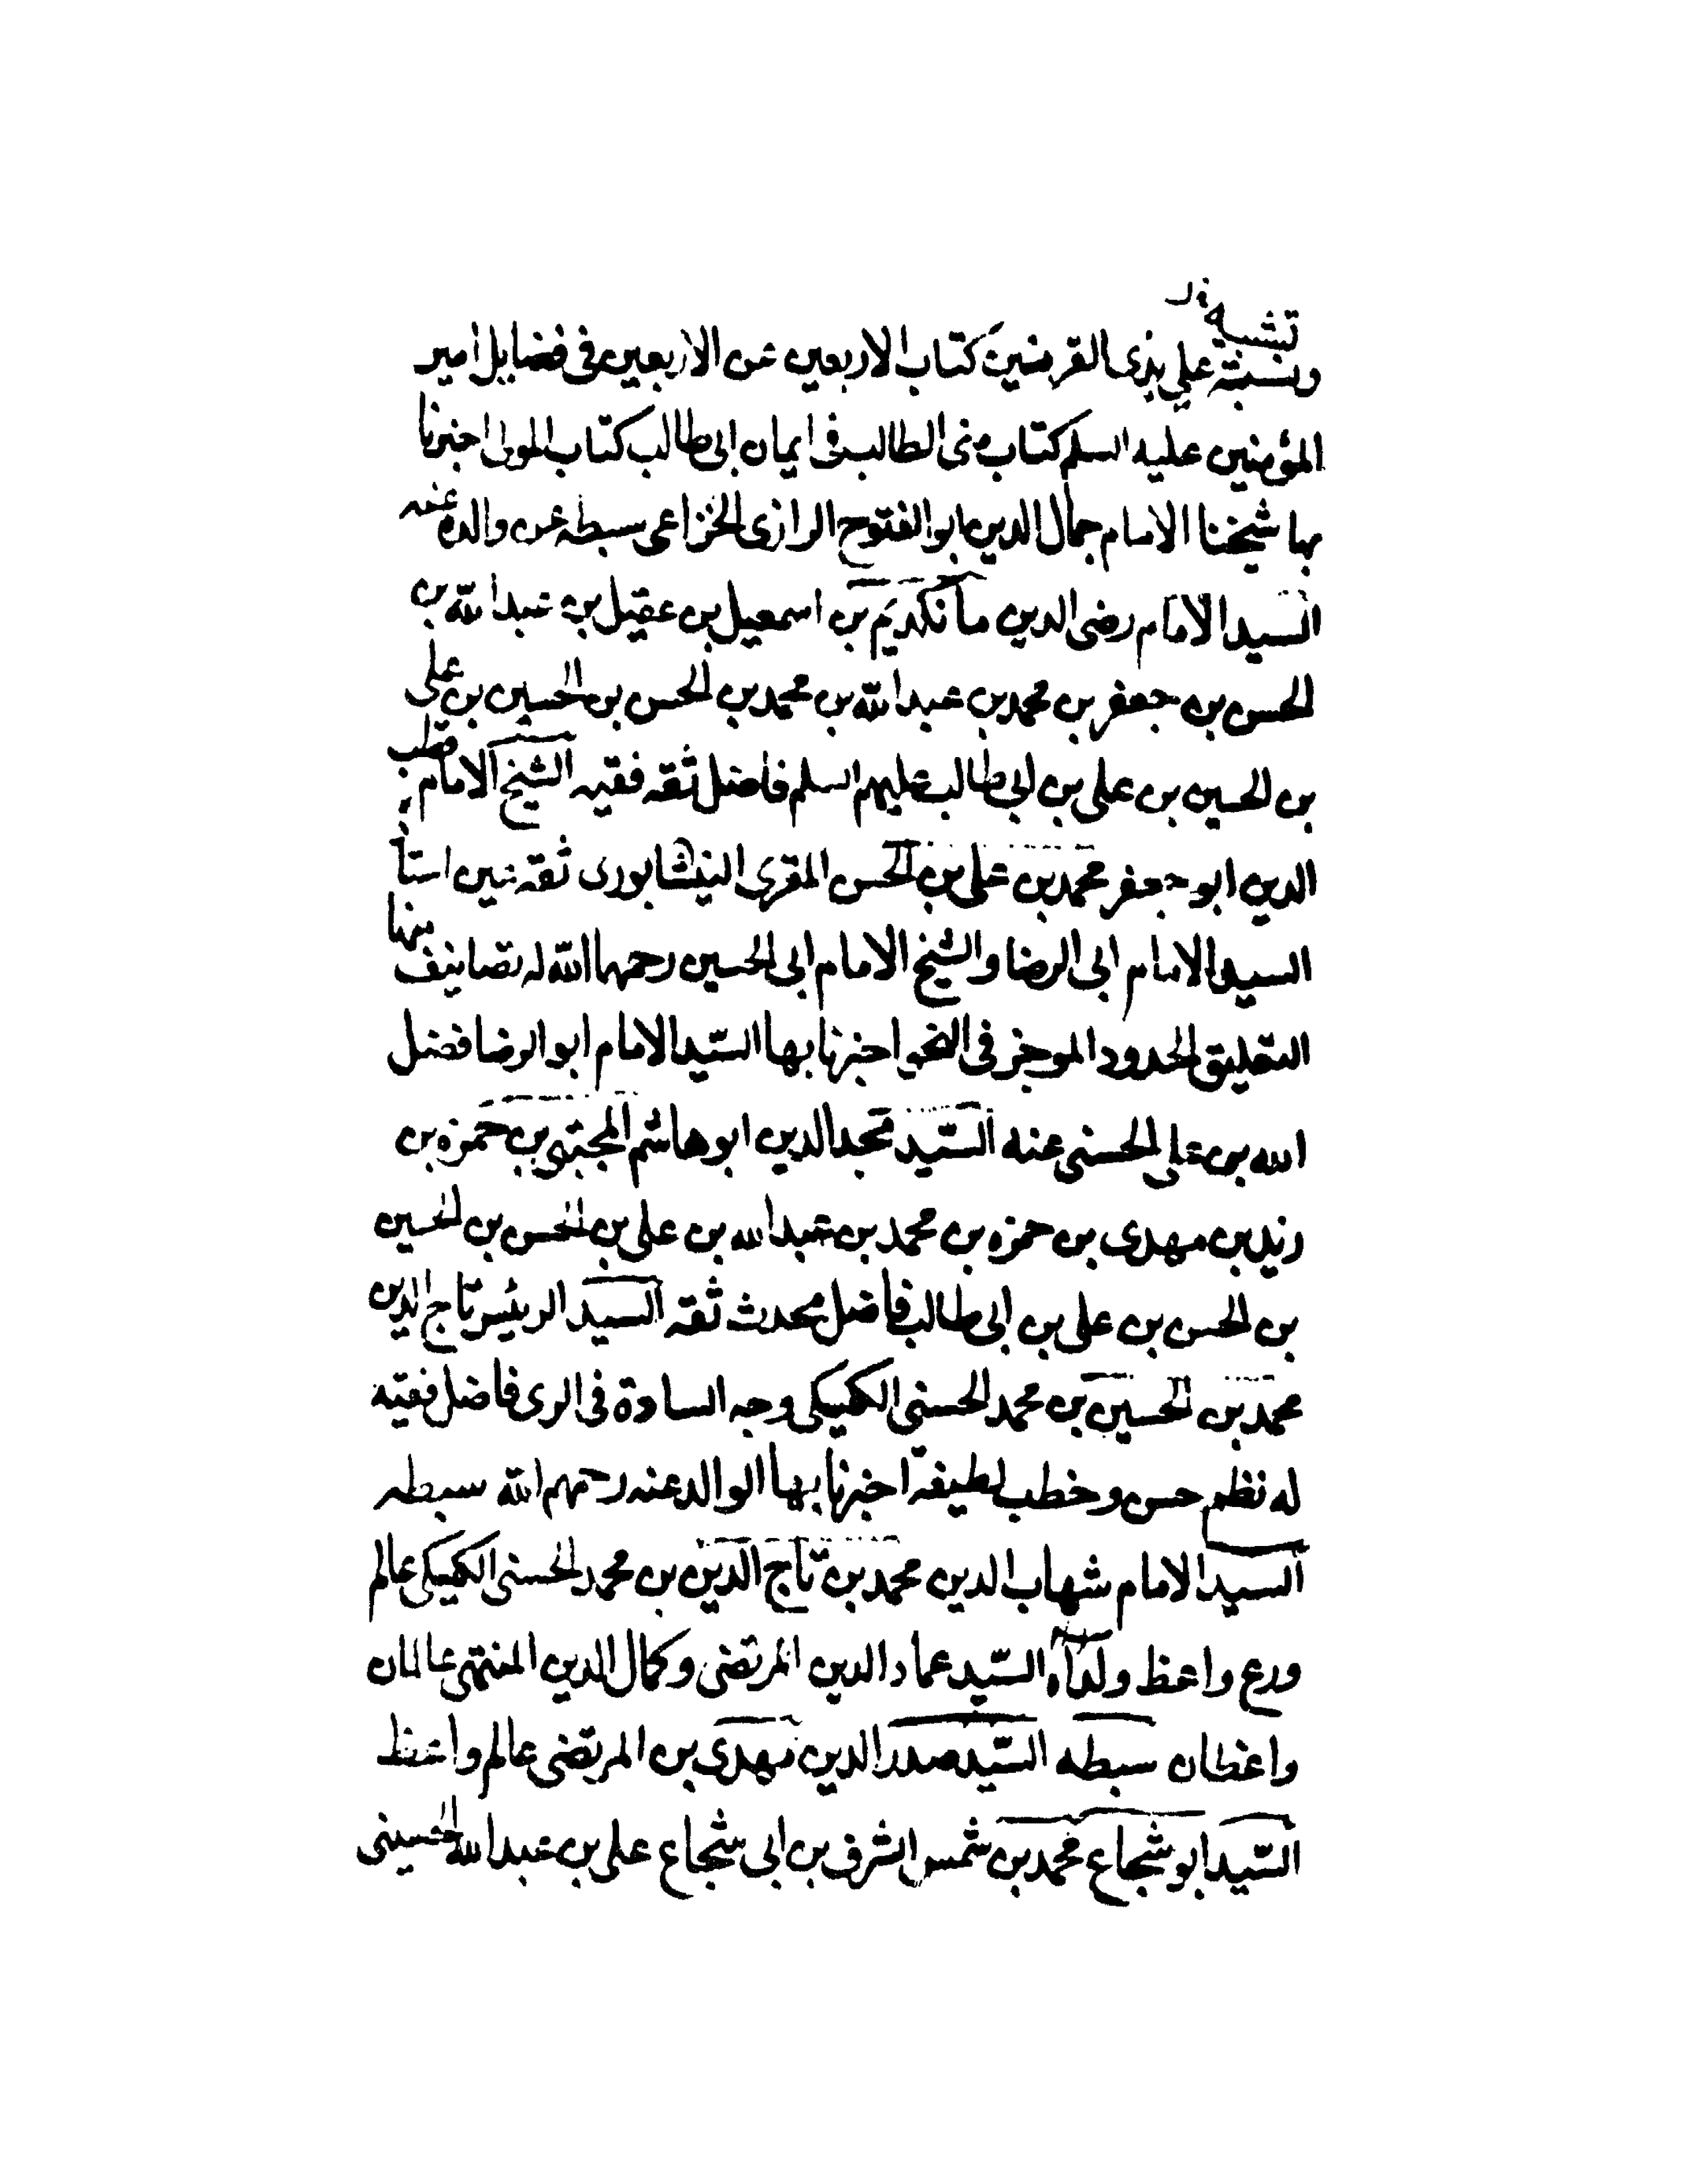 تشبيه
ونسبته علي بذى القرنين كتاب الاربعين عن الاربعين فى فضايل امير
المؤمنين عليه السلم كتاب منى الطالب فى ايمان ابى طالب كتاب المولى اخبرنا
بها شيخنا الامام جمال الدين ابو الفتوح الرازى الخزاعى سبطه عن والده عنه
السيد الامام رضى الدين مانكديم بن اسمعيل بن عقيل بن عبد الله بن
الحسن بن جعفر بن محمد بن عبد الله بن محمد بن الحسن بن الحسين بن على
بن الحسين بن على بن ابى طالب عليهم السلم فاضل ثقه فقيه الشيخ الامام قطب
الدين ابو جعفر محمد بن على بن الحسن المقرى النيشابورى ثقه عين استاذ
السيد الامام ابى الرضا والشيخ الامام ابى الحسين رحمهما الله له تصانيف منها
التعليق الحدود الموجز فى النحو اخبرنا بها السيد الامام ابو الرضا فضل
الله بن على الحسنى عنه السيد مجد الدين ابو هاشم المجتبى بن حمزه بن
زيد بن مهدى بن حمزه بن محمد بن عبد الله بن على بن الحسن بن الحسين
بن الحسن بن على بن ابى طالب فاضل محدث ثقه السيد الرئيس تاج الدين
محمد بن الحسين بن محمد الحسنى الكيسكى وجه السادة فى الرى فاضل فقيه
له نظم حسن وخطب لطيفة اخبرنا بها الوالد عنه رحمهم الله سبطه
السيد الامام شهاب الدين محمد بن تاج الدين بن محمد الحسنى الكيسكى عالم
ورع واعظ ولداه السيد عماد الدين المرتضى وكمال الدين المنتهى عالمان
واعظان سبطه السيد صدر الدين مهدى بن المرتضى عالم واعظ
السيد ابو شجاع محمد بن شمس الشرف بن ابى شجاع على بن عبد الله الحسينى